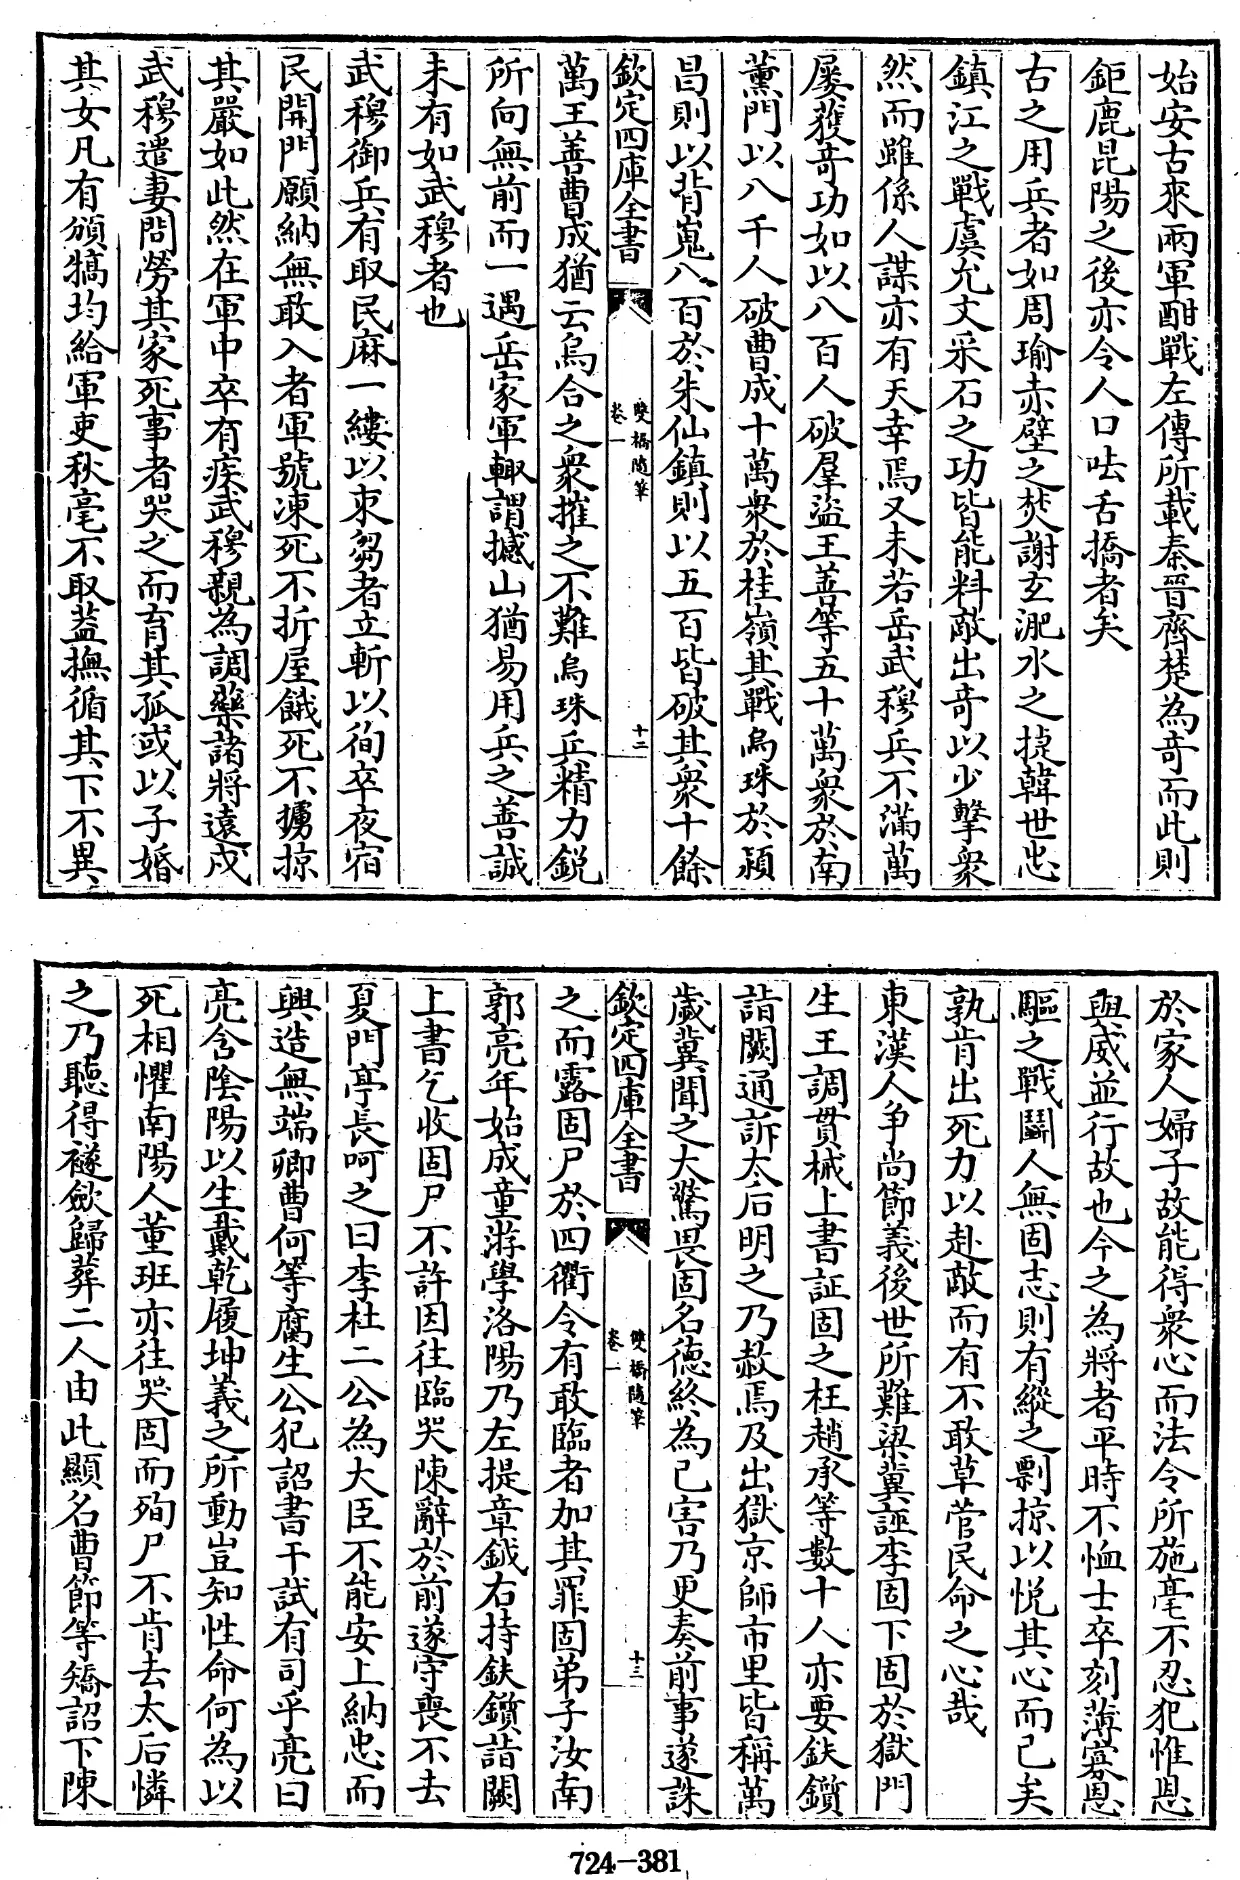 始安古來兩軍酣戰左傳所載秦晉齊楚為奇而此則
鉅鹿昆陽之後亦令人口呿舌撟者矣
古之用兵者如周瑜赤壁之焚謝玄淝水之捷韓世忠
鎮江之戰虞允文采石之功皆能料敵出奇以少擊衆
然而雖係人謀亦有天幸焉又未若岳武穆兵不滿萬
屢獲奇功如以八百人破羣盜王善等五十萬衆於南
薰門以八千人破曹成十萬衆於桂嶺其戰烏珠於潁
昌則以背嵬八百於朱仙鎮則以五百皆破其衆十餘
欽定四庫全書
雙橋隨筆
卷一
十二
萬王善曹成猶云烏合之衆摧之不難烏珠兵精力鋭
所向無前而一遇岳家軍輙謂撼山猶易用兵之善誠
未有如武穆者也
武穆御兵有取民麻一縷以束芻者立斬以徇卒夜宿
民開門願納無敢入者軍號凍死不折屋餓死不擄掠
其嚴如此然在軍中卒有疾武穆親為調藥諸將遠戍
武穆遣妻問勞其家死事者哭之而育其孤或以子婚
其女凡有頒犒均給軍吏秋毫不取葢撫循其下不異
於家人婦子故能得衆心而法令所施毫不忍犯惟恩
與威並行故也今之為將者平時不恤士卒刻薄寡恩
驅之戰鬭人無固志則有縱之剽掠以悅其心而已矣
孰肯出死力以赴敵而有不敢草菅民命之心哉
東漢人争尚節義後世所難梁冀誣李固下固於獄門
生王調貫械上書証固之枉趙承等數十人亦要鈇鑕
詣闕通訴太后明之乃赦焉及出獄京師市里皆稱萬
歲冀聞之大驚畏固名德終為己害乃更奏前事遂誅
欽定四庫全書
雙橋隨筆
卷一
十三
之而露固尸於四衢令有敢臨者加其罪固弟子汝南
郭亮年始成童游學洛陽乃左提章鉞右持鈇鑕詣闕
上書乞收固尸不許因往臨哭陳辭於前遂守喪不去
夏門亭長呵之曰李杜二公為大臣不能安上納忠而
興造無端卿曹何等腐生公犯詔書干試有司乎亮曰
亮含陰陽以生戴乾履坤義之所動豈知性命何為以
死相懼南陽人董班亦往哭固而殉尸不肯去太后憐
之乃聽得襚歛歸葬二人由此顯名曹節等矯詔下陳
724-381